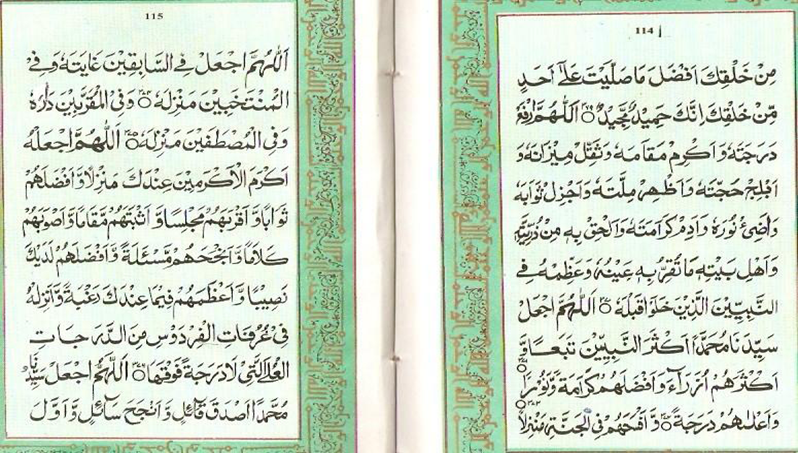 114
مِنْ خَلْقِكَ اَفْضَلَ مَا صَلَّيْتَ عَلٰٓى اَحَدٍ
مِّنْ خَلْقِكَ اِنَّكَ حَمِيْدٌ مَّجِيْدٌ ۝ اَللّٰهُمَّ ارْفَعْ
دَرَجَتَهٗ وَاَكْرِمْ مَقَامَهٗ وَثَقِّلْ مِيْزَانَهٗ وَ
اَفْلِجْ حُجَّتَهٗ وَاَظْهِرْ مِلَّتَهٗ وَاَجْزِلْ ثَوَابَهٗ
وَاَضِئْ نُوْرَهٗ وَاَدِمْ كَرَامَتَهٗ وَاَلْحِقْ بِهٖ مِنْ ذُرِّيَّتِهٖ
وَاَهْلِ بَيْتِهٖ مَا تُقِرُّ بِهٖ عَيْنَهٗ وَعَظِّمْهُ فِى
النَّبِيِّيْنَ الَّذِيْنَ خَلَوْا قَبْلَهٗ ۝ اَللّٰهُمَّ اجْعَلْ
سَيِّدَنَا مُحَمَّدًا اَكْثَرَ النَّبِيِّيْنَ تَبَعًا وَّ
اَكْثَرَهُمْ اُزَرَآءَ وَاَفْضَلَهُمْ كَرَامَةً وَّنُوْرًا
وَاَعْلَاهُمْ دَرَجَةً ۝ وَّاَفْسَحَهُمْ فِى الْجَنَّةِ مَنْزِلًا
115
اَللّٰهُمَّ اجْعَلْ فِى السَّابِقِيْنَ غَايَتَهٗ وَفِى
الْمُنْتَخَبِيْنَ مَنْزِلَهٗ ۝ وَفِى الْمُقَرَّبِيْنَ دَارَهٗ
وَفِى الْمُصْطَفَيْنَ مَنْزِلَهٗ ۝ اَللّٰهُمَّ اجْعَلْهُ
اَكْرَمَ الْاَكْرَمِيْنَ عِنْدَكَ مَنْزِلًا وَّاَفْضَلَهُمْ
ثَوَابًا وَّاَقْرَبَهُمْ مَجْلِسًا وَّاَثْبَتَهُمْ مَقَامًا وَّاَصْوَبَهُمْ
كَلَامًا وَّاَنْجَحَهُمْ مَسْئَلَةً وَّاَفْضَلَهُمْ لَدَيْكَ
نَصِيْبًا وَّاَعْظَمَهُمْ فِيْمَا عِنْدَكَ رَغْبَةً وَّاَنْزِلْهُ
فِىْ غُرُفَاتِ الْفِرْدَوْسِ مِنَ الدَّرَجَاتِ
الْعُلَى الَّتِىْ لَا دَرَجَةَ فَوْقَهَا ۝ اَللّٰهُمَّ اجْعَلْ سَيِّدَنَا
مُحَمَّدًا اَصْدَقَ قَائِلٍ وَّاَنْجَحَ سَائِلٍ وَّاَوَّلَ